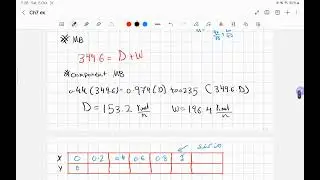 Ch7 ex
MB
349.6 = D+W
*component MB
0.44 (349.6) = 0.974(D) + 0.0235 (349.6-D)
D = 153.2 kmol/h W = 196.4 kmol/h
X 0 0.2 0.4 0.6 0.8 1
Y 0